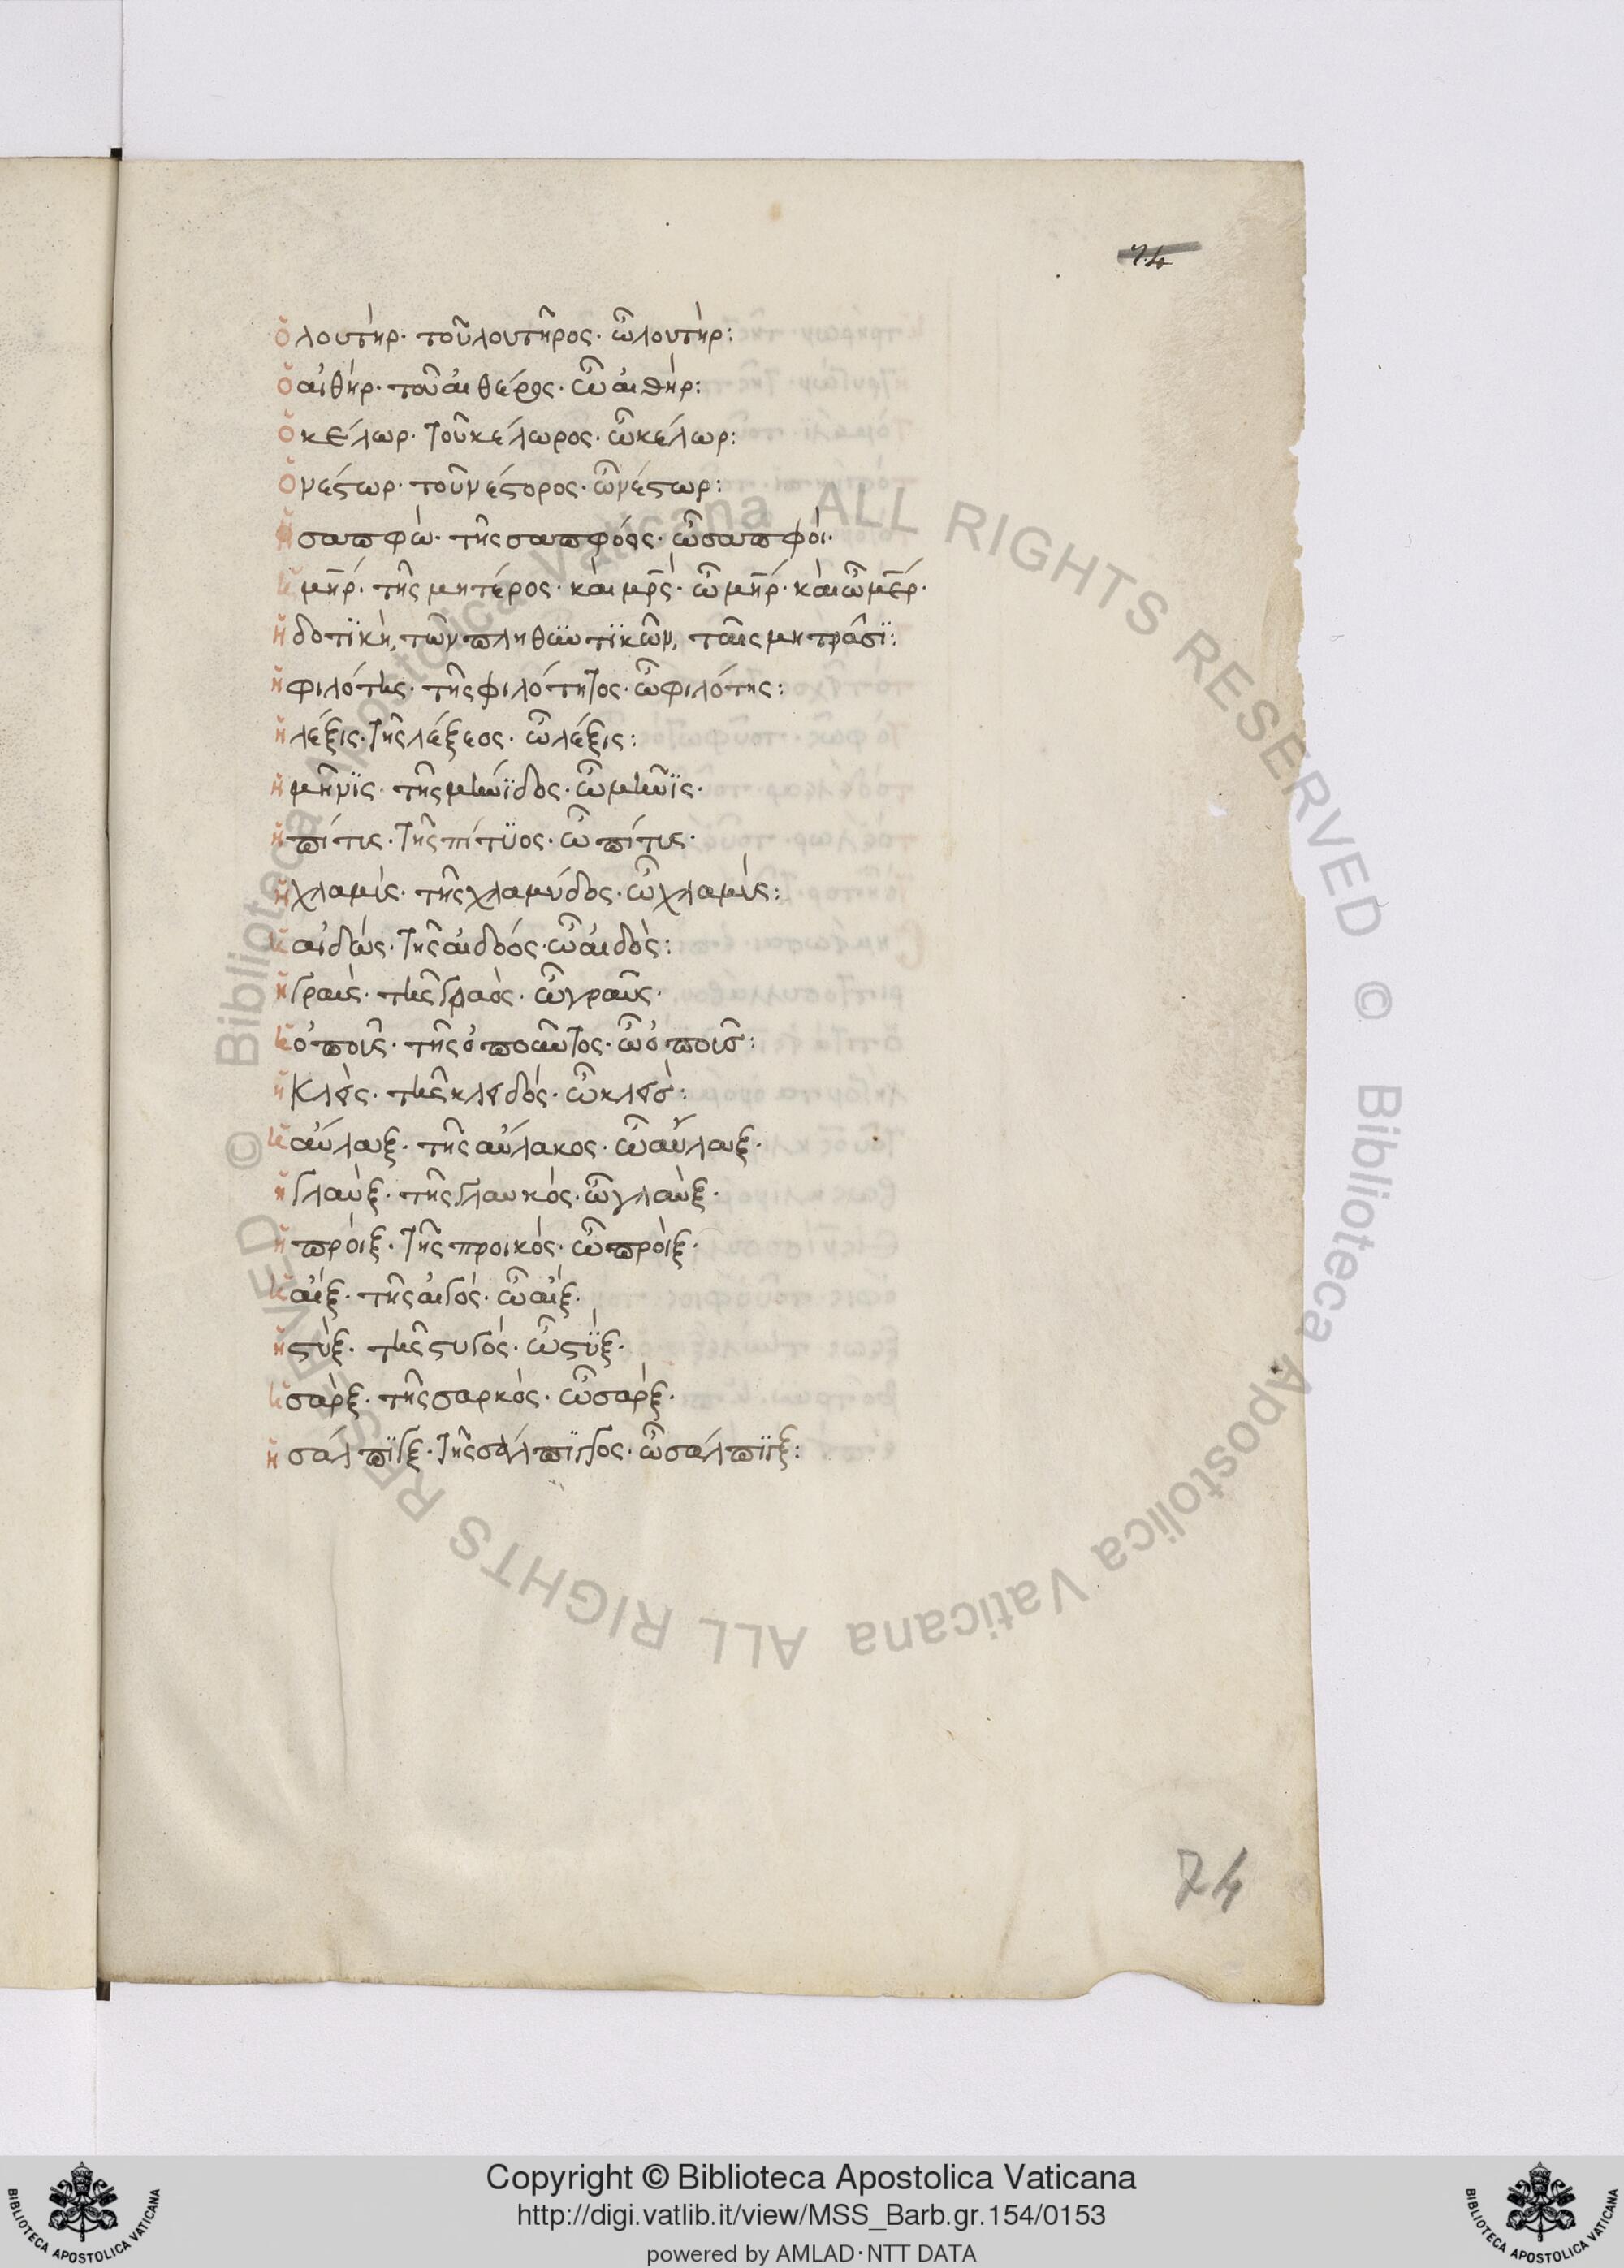 74
ὁ λουτὴρ· τοῦ λουτῆρος· ὦ λουτὴρ:
ὁ αἰθὴρ· τοῦ αἰθέρος· ὦ αἰθὴρ:
ὁ κέλωρ· τοῦ κέλωρος· ὦ κέλωρ:
ὁ νέστωρ· τοῦ νέστορος· ὦ νέστωρ:
ἡ σαπφὼ· τῆς σαπφόος· ὦ σαπφοὶ·
ἡ μηρ· τῆς μητέρος· καὶ μρς· ὦ μηρ· καὶ ὦ μερ·
ἡ δοτϊκὴ, τῶν πληθϋντϊκῶν, ταῖς μητράσϊ:
ἡ φιλότης· τῆς φιλότητος· ὦ φιλότης:
ἡ λέξις· τῆς λέξεος· ὦ λέξις:
ἡ μῆνϊς· τῆς μήνϊδος· ὦ μῆνϊς·
ἡ πίτυς· τῆς πίτϋος· ὦ πίτυς·
ἡ χλαμὺς· τῆς χλαμύδος· ὦ χλαμὺς:
ἡ αἰδὼς· τῆς αἰδοός· ὦ αἰδὸς:
ἡ γραὺς· τῆς γραὸς· ὦ γραῦς·
ἡ ὀποῦς· τῆς ὀποῦντος· ὦ ὀποῦς:
ἡ κλεὶς· τῆς κλειδὸς· ὦ κλεὶς:
ἡ αὔλαξ· τῆς αὔλακος· ὦ αὖλαξ·
ἡ γλαὺξ· τῆς γλαυκὸς· ὦ γλαὺξ·
ἡ προὶξ· τῆς προικὸς· ὦ προὶξ·
ἡ αἲξ· τῆς αἰγὸς· ὦ αἲξ·
ἡ στὺξ· τῆς στυγὸς· ὦ στὺξ·
ἡ σὰρξ· τῆς σαρκὸς· ὦ σὰρξ·
ἡ σάλπϊγξ· τῆς σάλπϊγγος· ὦ σάλπϊγξ:
74
© Biblioteca Apostolica Vaticana ALL RIGHTS RESERVED © Biblioteca Apostolica Vaticana ALL RIGHTS RESERVED
Copyright © Biblioteca Apostolica Vaticana
http://digi.vatlib.it/view/MSS_Barb.gr.154/0153
powered by AMLAD·NTT DATA
BIBLIOTECA APOSTOLICA VATICANA
BIBLIOTECA APOSTOLICA VATICANA